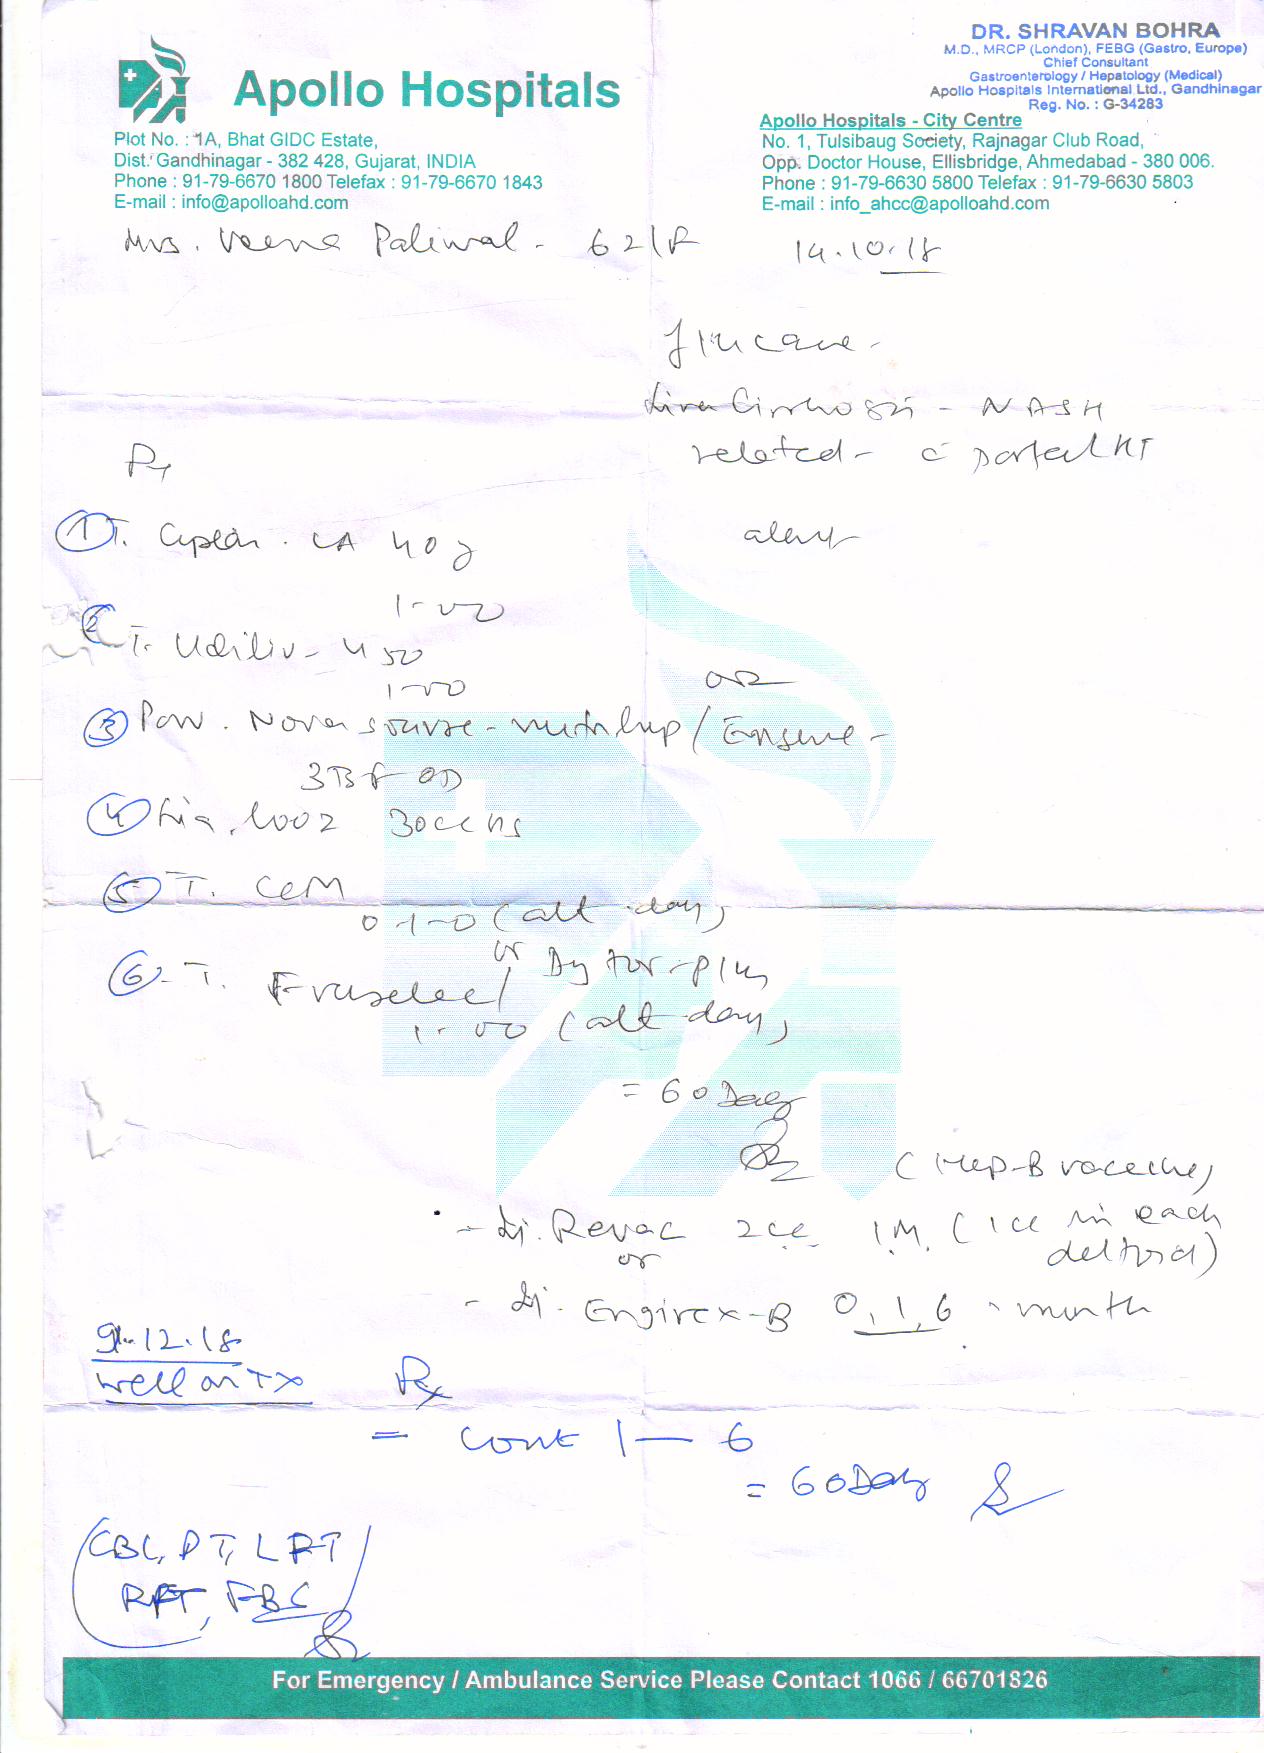 DR. SHRAVAN BOHRA
M.D., MRCP (London), FEBG (Gastro, Europe)
Chief Consultant
Gastroenterology / Hepatology (Medical)
Apollo Hospitals International Ltd., Gandhinagar
Reg. No. : G-34283
Apollo Hospitals
Plot No. : 1A, Bhat GIDC Estate,
Dist. Gandhinagar - 382 428, Gujarat, INDIA
Phone : 91-79-6670 1800 Telefax : 91-79-6670 1843
E-mail : info@apolloahd.com
Apollo Hospitals - City Centre
No. 1, Tulsibaug Society, Rajnagar Club Road,
Opp. Doctor House, Ellisbridge, Ahmedabad - 380 006.
Phone : 91-79-6630 5800 Telefax : 91-79-6630 5803
E-mail : info_ahcc@apolloahd.com
Mrs. Veena Paliwal - 62/F
14.10.18
Liver Cirrhosis - NASH
related - c portal HT
alert
① T. LA 40
1-00
② T. Udiliv - 450
1-00
OR
③ Pow. Novasource - / Ensure -
3 OD
④ Liq. Looz 30cc HS
⑤ T. CCM
0-1-0 (alt day)
or Dytor-plus
⑥ T. Fruselac /
1-00 (alt day)
= 60 Days
(Hep-B vaccine)
- Inj. Revac 2cc I.M. (1cc in each
deltoid)
or
- Inj. Engirex-B 0, 1, 6 month
9.12.18
Well on Tx
Rx
= cont 1 — 6
= 60 Days
(CBC, PT, LFT
RFT, FBS)
For Emergency / Ambulance Service Please Contact 1066 / 66701826